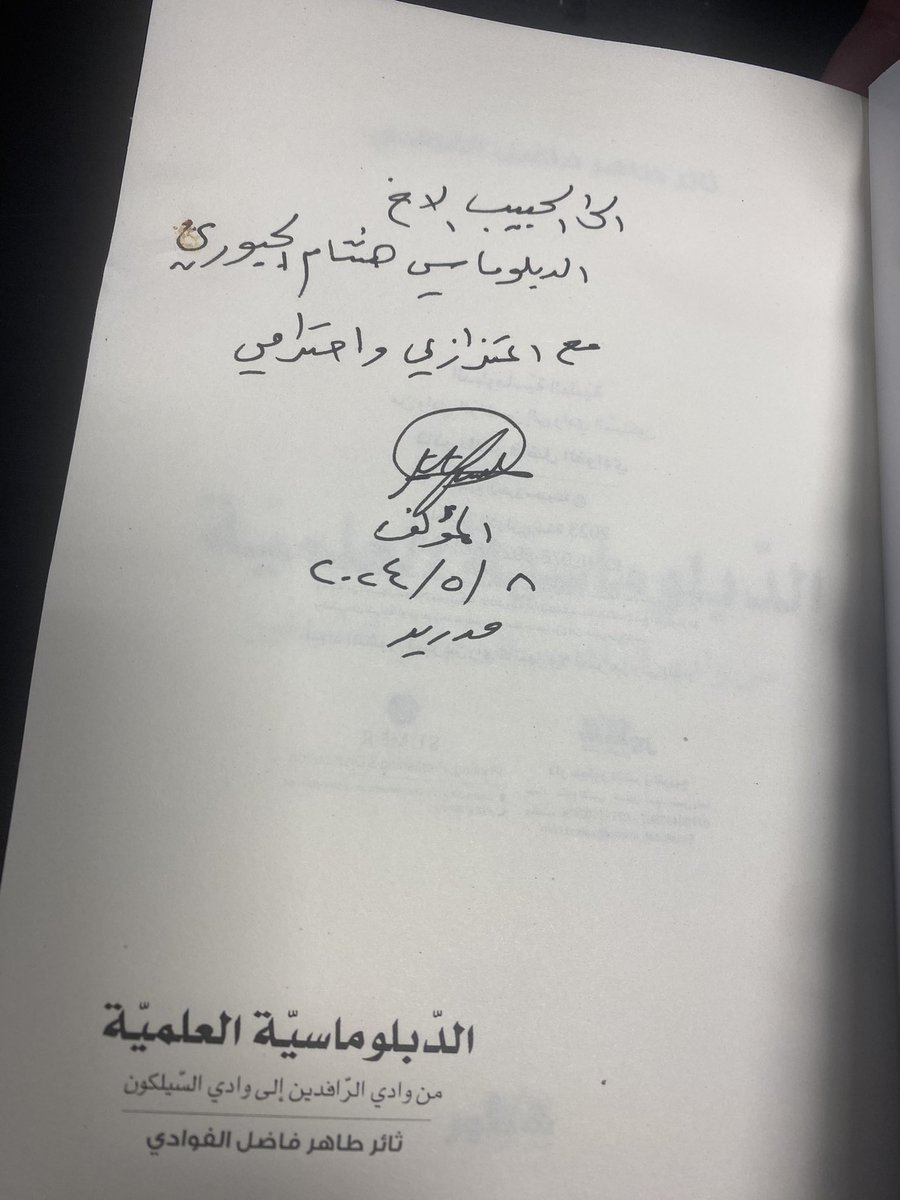 الى الحبيب الاخ
الدبلوماسي هشام الجبوري
مع اعتزازي واحترامي
المؤلف
٢٠٢٤/٥/٨
مدريد
الدّبلوماسيّة العلميّة
من وادي الرّافدين إلى وادي السّيلكون
ثائر طاهر فاضل الفوادي